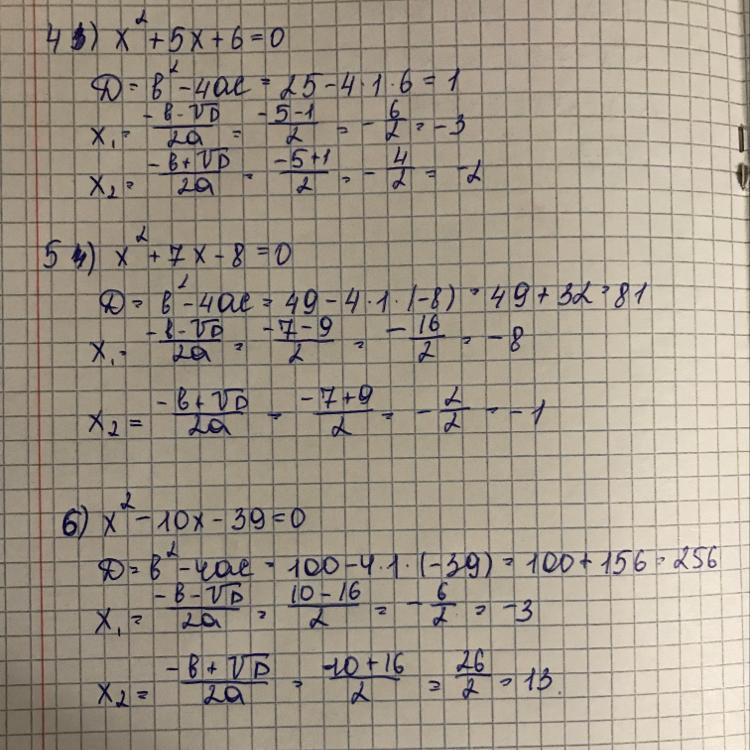 4) x² + 5x + 6 = 0
D = b² - 4ac = 25 - 4·1·6 = 1
x₁ = (-b - √D)/2a = (-5-1)/2 = -6/2 = -3
x₂ = (-b + √D)/2a = (-5+1)/2 = -4/2 = -2
5) x² + 7x - 8 = 0
D = b² - 4ac = 49 - 4·1·(-8) = 49 + 32 = 81
x₁ = (-b - √D)/2a = (-7-9)/2 = -16/2 = -8
x₂ = (-b + √D)/2a = (-7+9)/2 = -2/2 = -1
6) x² - 10x - 39 = 0
D = b² - 4ac = 100 - 4·1·(-39) = 100 + 156 = 256
x₁ = (-b - √D)/2a = (10-16)/2 = -6/2 = -3
x₂ = (-b + √D)/2a = (10+16)/2 = 26/2 = 13.